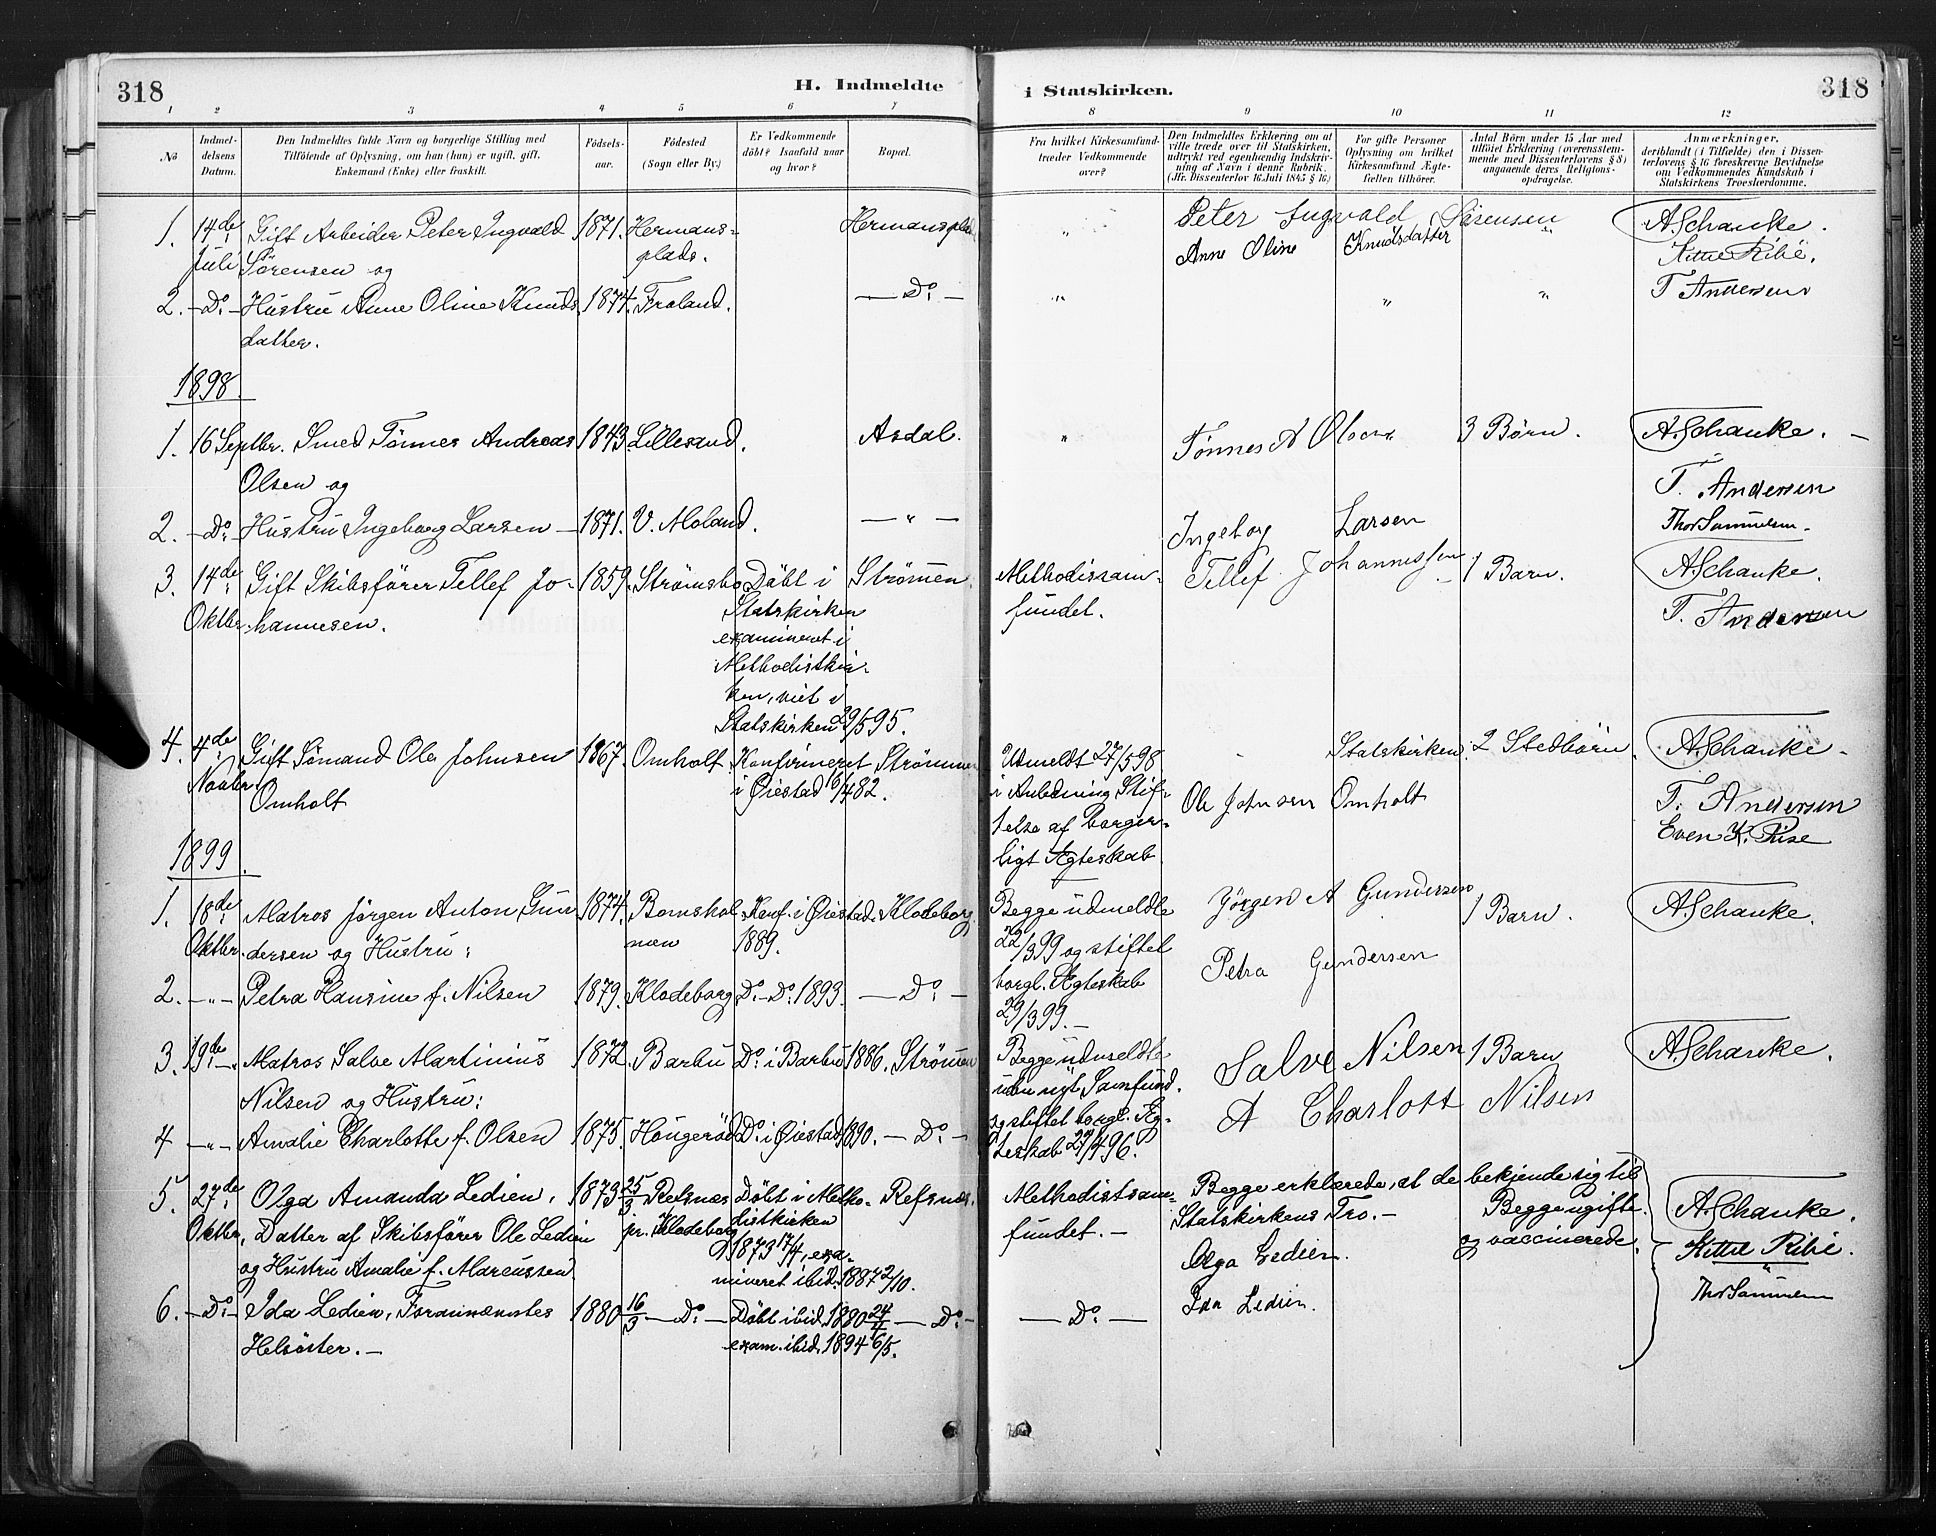 318
H. Indmeldte
i Statskirken.
318
1 2 3 4 5 6 7 8 9 10 11 12
No
Indmeldelsens Datum.
Den Indmeldtes fulde Navn og borgerlige Stilling med
Tilföiende af Oplysning, om han (hun) er ugift, gift,
Enkemand (Enke) eller fraskilt.
Födselsaar.
Födested
(Sogn eller By.)
Er Vedkommende
döbt? Isaafald naar
og hvor?
Bopæl.
Fra hvilket Kirkesamfund
træder Vedkommende
over?
Den Indmeldtes Erklæring om at
ville træde over til Statskirken,
udtrykt ved egenhændig Indskriv-
ning af Navn i denne Rubrik.
(Jfr. Dissenterlov 16 Juli 1845 § 16)
For gifte Personer
Oplysning om hvilket
Kirkesamfund Ægte-
fællen tilhörer.
Antal Börn under 15 Aar med
tilföiet Erklæring (overensstem-
mende med Dissenterlovens § 8)
angaaende deres Religions-
opdragelse.
Anmærkninger,
deriblandt (i Tilfælde) den i Dissen-
terlovens § 16 foreskrevne Bevidnelse
om Vedkommendes Kundskab i
Statskirkens Troeslærdomme.
1. 14de Juli Gift Arbeider Peter Ingvald 1871. Hermans- Hermansplads
Sørensen og plads.
" Peter Ingvald Sörensen " A. Schanke
Anne Oline Knudsdatter Kittil Ribe.
2. - Do - Hustru Anne Oline Knuds 1874. Froland. - Do -
datter.
" " " T Andersen
1898.
1. 16 Septbr. Smed Tönnes Andreas 1843. Lillesand. Asdal.
Olsen og
" Tønnes A Olsen 3 Børn. A. Schanke. -
T. Andersen
2. - Do - Hustru Ingeborg Larsen - 1871. V. Moland. - " -
Ingeborg Larsen Thor Samuelsen.
3. 14de Oktbr. Gift Skibsfører Tellef Jo- 1859. Strømsbo Döbt i Strømmen.
hannesen. Statskirken
examineret i
Methodistkir-
ken, viet i
Statskirken 29/5 95.
Methodissam-
fundet.
Tellef Johannessen - 1 Barn. A. Schanke.
T. Andersen
4. 4de Novbr. Gift Sømand Ole Johnsen 1867. Omholt. Konfirmeret Strømmen
Omholt i Øiestad 16/4 82.
Udmeldt 27/5 98 - Statskirken. 2 Stedbørn. A. Schanke -
i Anledning Stif-
telse af borger-
ligt Ægteskab.
Ole Johnsen Omholt T. Andersen
Even K. Rise
1899.
1. 18de Oktbr. Matros Jørgen Anton Gun 1874. Bomskol Konf. i Øiestad Klodeborg
dersen og Hustru: nien 1889.
Begge udmeldte Jörgen A Gundersen 1 Barn. A. Schanke.
22/3 99 og stiftet
2. - " - Petra Hansine f. Nilsen 1879. Klodeborg Do - Do 1893. - Do -
borgl. Ægteskab Petra Gundersen
29/3 99. -
3. 19de - " Matros Salve Martinius 1872. Barbu Do i Barbu 1886. Strømmen
Nilsen og Hustru:
Begge udmeldte Salve Nilsen 1 Barn A. Schanke.
uden nyt Samfund.
4 - " - Amalie Charlotte f. Olsen 1875. Hougerød Do i Øiestad 1890. - Do -
og stiftet borgl. Æg- A Charlott Nilsen
teskab 29/4 96.
5. 27de Oktbr. Olga Amanda Ledien, 1873 25/3 Refsnæs Döbt i Metho- Refsnæs.
Datter af Skibsfører Ole Ledien pr. Klodeborg distkirken
og Hustru Amalie f. Marcussen 1873 17/4, exa-
mineret ibid. 1887 2/10.
Methodistsam-
fundet. -
Begge erklærede, at de bekjende sig til
Statskirkens Tro. - Begge ugifte
og vaccinerede.
Olga Ledien.
A. Schanke.
Kittil Ribe.
Thor Samuelsen
6. - Do - Ida Ledien, Forannævntes 1880 16/3 - Do - Döbt ibid. 1880 24/4 - Do -
Helsöster. - exam. ibid. 1894 6/5.
- Do - Ida Ledien.